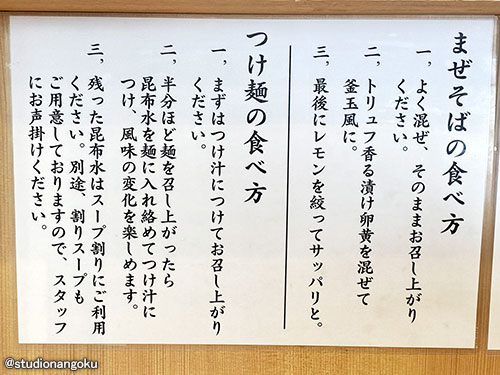 まぜそばの食べ方
一、よく混ぜ、そのままお召し上がり
ください。
二、トリュフ香る漬け卵黄を混ぜて
釜玉風に。
三、最後にレモンを絞ってサッパリと。
つけ麺の食べ方
一、まずはつけ汁につけてお召し上がり
ください。
二、半分ほど麺を召し上がったら
昆布水を麺に入れ絡めてつけ汁に
つけ、風味の変化を楽しめます。
三、残った昆布水はスープ割りにご利用
ください。別途、割りスープも
ご用意しておりますので、スタッフ
にお声掛けください。
@studionangoku